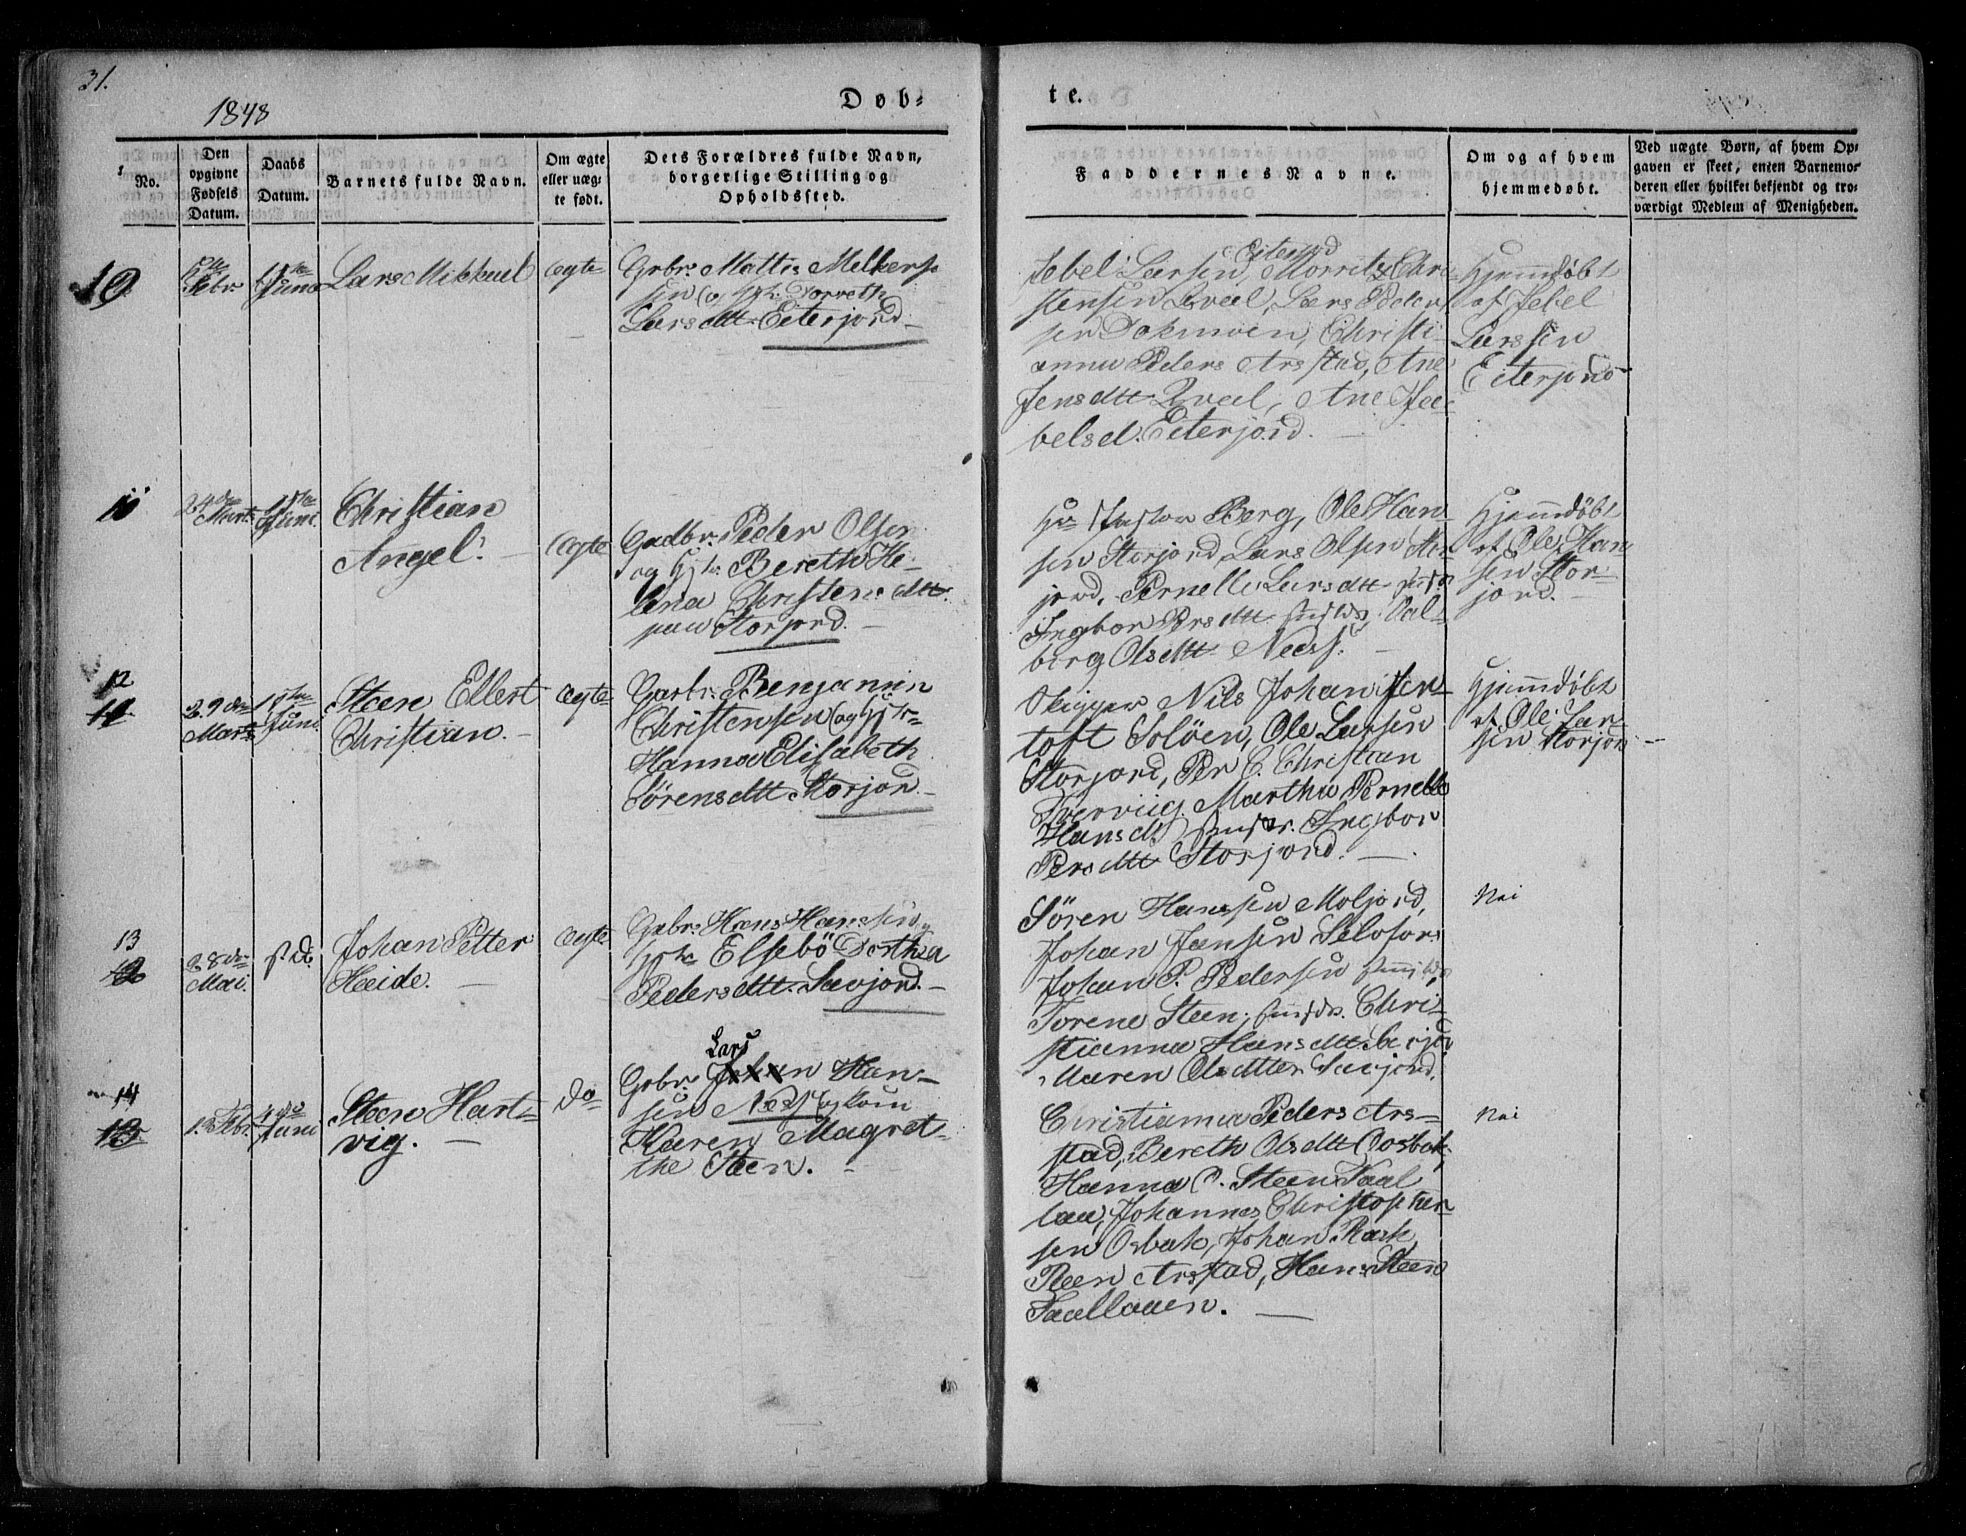 31.
1848
Døb-
te.
No.
Den opgivne Fødsels Datum.
Daabs Datum.
Barnets fulde Navn.
Om ægte eller uæg-te født.
Dets Forældres fulde Navn, borgerlige Stilling og Opholdssted.
Faddernes Navne.
Om og af hvem hjemmedøbt.
Ved uægte Børn, af hvem Op-gaven er skeet, enten Barnemo-deren eller hvilket bekjendt og tro-værdigt Medlem af Menigheden.
10
Febr.
Juni
Lars Mikkael
ægte
Grbr. Mattis Melkers-
sen og
Larsdtt. Eiterjord
Jebel Larsen, Eiterjord Morrits Chri-
stensen Qval, Lars Peder-
sen Dokmoen, Christi-
anna Peders Arstad, Ane
Jensdtt Qval, Ane Je-
belsd. Eiterjord.
Hjemdøbt
af Jebel
Larssen
Eiterjord
11
24de Mart
Juni
Christian
Angel.
ægte
Gadbr. Peder Olsen
og Hstr. Bereth He-
lena Christensdtt
paa Storjord.
Hr Pastor Berg, Ole Han-
sen Storjord Lars Olsen Stor-
jord, Pernelle Larsdtt
Ingbor Persdtt Aal-
berg Olsdtt Næss.
Hjemmdøbt
af Ole Han
sen Stor-
jord.
12
29de Mart.
Juni
Steen Ellert
Christian.
ægte
Garbr. Benjamin
Christensen og Hstr.
Hanna Elisabeth
Sørensdtt Storjor
Skipper Nils Johan Jen-
toft Soløen, Ole Larsen
Storjord, Per C. Christian
Tverviig. Martha Pernella
Hansdt Ingbor
Persdtt Storjord.
Hjemmdøbt
af Ole Lar-
sen Storjor
13
28de Mai.
s. D.
Johan Petter
Heide.
ægte
Grbr. Hans Hansen
Hstr Elsebö Dorthea
Pedersdtt. Savjord.
Søren Hanssen Moljord,
Johan Jansen Selvfor
Johan P. Pedersen
Torene Steen, Chri-
stianna Hansdtt.
Maren Olsdtter Savjord.
Nei
14
13
Febr.
Juni
Steen Hart-
vig.
Do
Grbr. Lars Johan Han-
sen Næss og Kone
Karen Magret-
the Steen.
Christianna Peders Ars-
stad, Bereth Olsdtt Oosbak,
Hanna C. Steen Saal
laa, Johannes Christopher-
sen Osbak, Johan Rask
Reen Arsstad, Hans Steen
Saallauen.
Nei